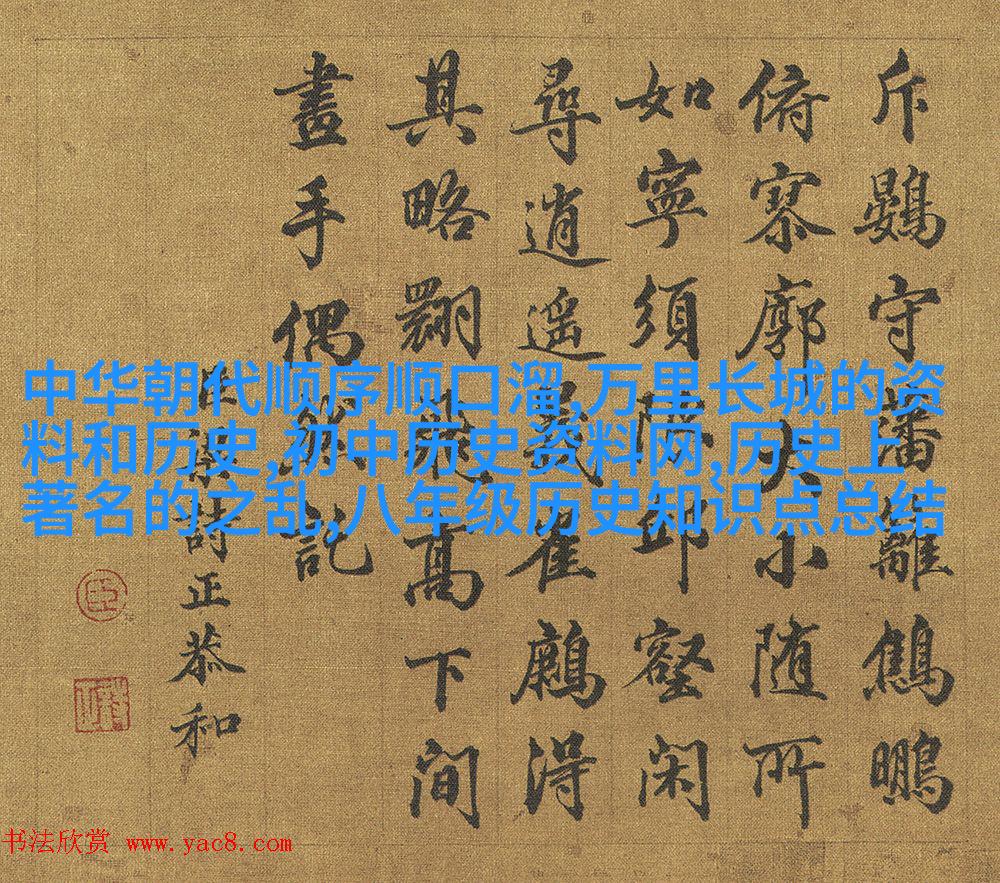 斥鷃守藩籬鵬
俯寥廓大小隨所
如寧須限邱壑閑
尋逍遙義崔得
其略翻飛高下間
畫手偶託
臣梁詩正恭和
中华朝代顺序顺口溜,万里长城的资
料和历史,初中历史资料网,历史上
著名的之乱,八年级历史知识点总结
书法欣赏 www.yac8.com